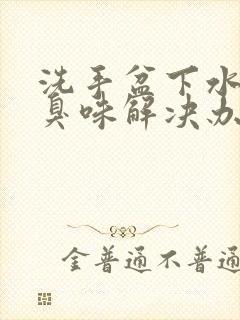 洗手盆下水
臭味解决办
金普通不普通